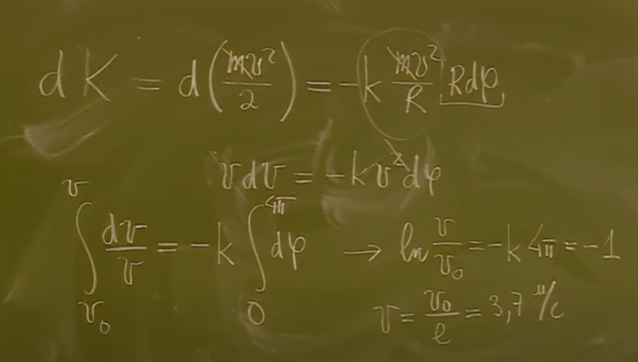 dK = d(mv²/2) = -k mv²/R Rdφ
vdv = -kv²dφ
∫_{v₀}^{v} dv/v = -k ∫_{0}^{4π} dφ → ln v/v₀ = -k4π = -1
v = v₀/e = 3,7 м/с